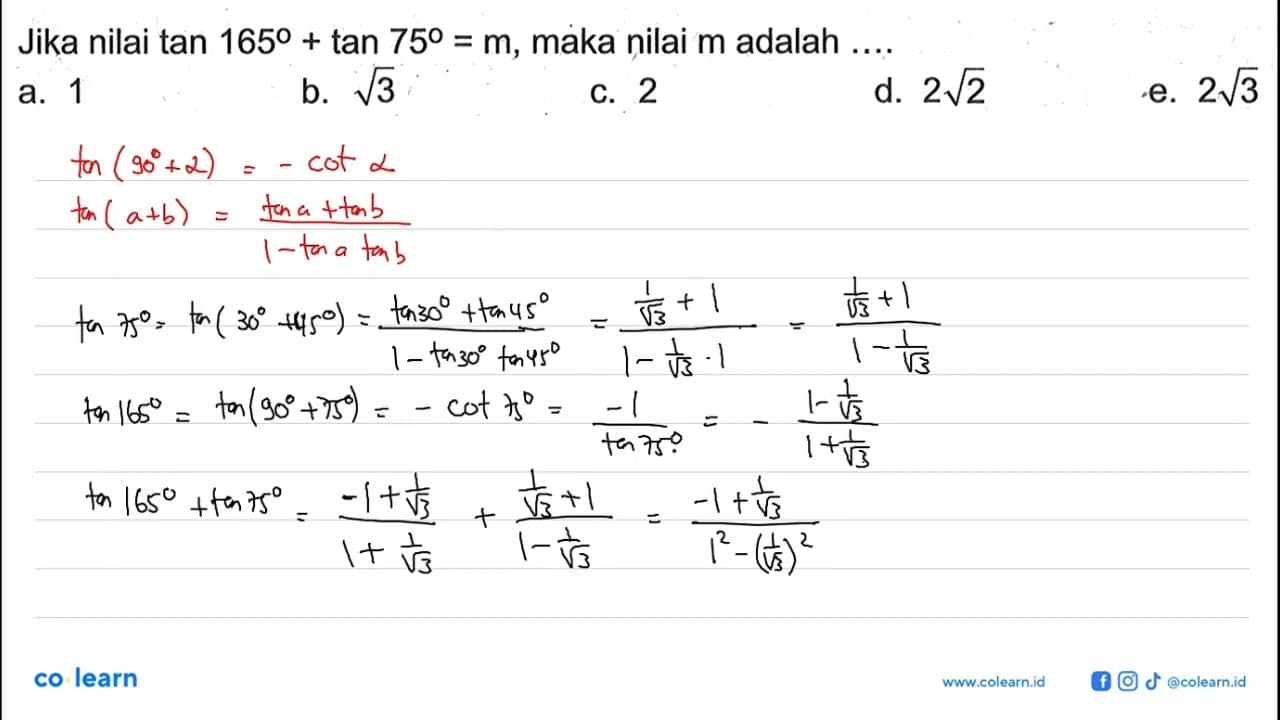 Jika nilai tan 165° + tan 75° = m, maka nilai m adalah ....
a. 1 b. √3 c. 2 d. 2√2 e. 2√3
tan (90° + α) = - cot α
tan (a+b) = (tan a + tan b) / (1 - tan a tan b)
tan 75° = tan (30° + 45°) = (tan 30° + tan 45°) / (1 - tan 30° tan 45°) = (1/√3 + 1) / (1 - 1/√3 · 1) = (1/√3 + 1) / (1 - 1/√3)
tan 165° = tan (90° + 75°) = - cot 75° = -1 / tan 75° = - (1 - 1/√3) / (1 + 1/√3)
tan 165° + tan 75° = (-1 + 1/√3) / (1 + 1/√3) + (1/√3 + 1) / (1 - 1/√3) = (-1 + 1/√3) / (1² - (1/√3)²)
co learn www.colearn.id @colearn.id